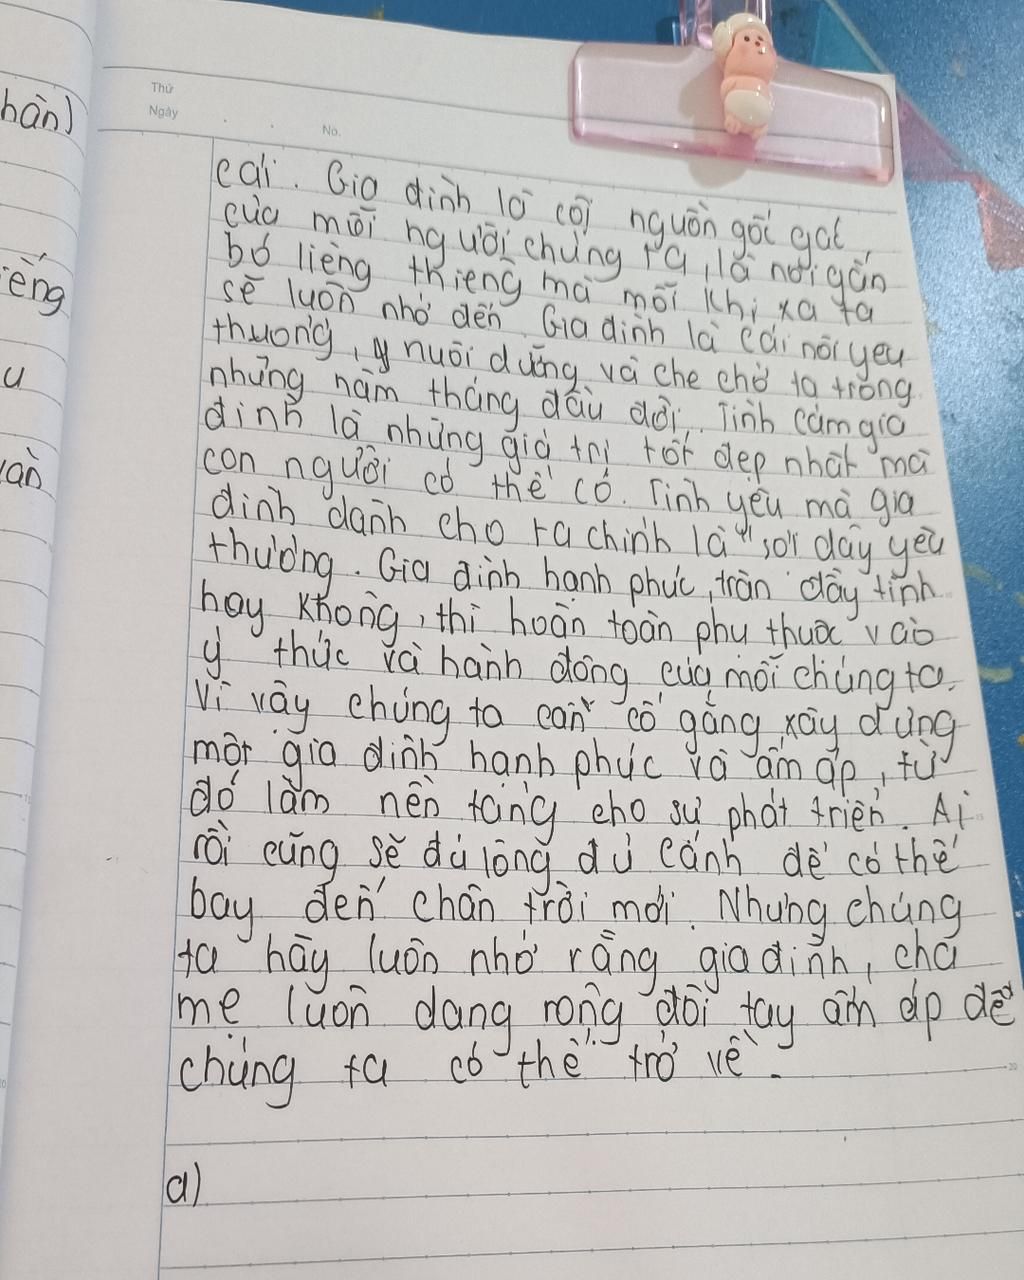 hàn)
iếng
u
vàn
Thứ
Ngày
No.
cái. Gia đình là cội nguồn gốc gác
của mỗi người chúng ta, là nơi gắn
bó liêng thiêng mà mỗi khi xa ta
sẽ luôn nhớ đến. Gia đình là cái nôi yêu
thương, nuôi dưỡng và che chở ta trong
những năm tháng đầu đời. Tình cảm gia
đình là những giá trị tốt đẹp nhất mà
con người có thể có. Tình yêu mà gia
đình dành cho ta chính là "sợi dây yêu
thương. Gia đình hạnh phúc, tràn đầy tình
hay không, thì hoàn toàn phụ thuộc vào
ý thức và hành động của mỗi chúng ta.
Vì vậy chúng ta cần cố gắng xây dựng
một gia đình hạnh phúc và ấm áp, từ
đó làm nền tảng cho sự phát triển. Ai
rồi cũng sẽ đủ lông đủ cánh để có thể
bay đến chân trời mới. Nhưng chúng
ta hãy luôn nhớ rằng gia đình, cha
mẹ luôn dang rộng đôi tay ấm áp để
chúng ta có thể trở về.
20
a)